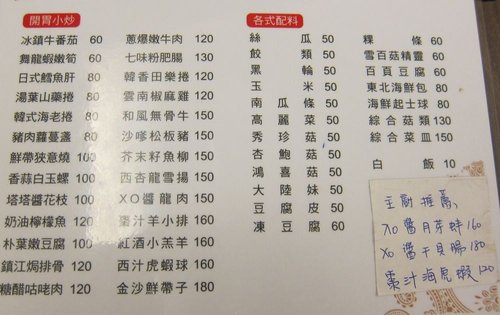 開胃小炒
冰鎮牛番茄 60
舞龍蝦嫩筍 60
日式鱈魚肝 80
湯葉山藥捲 80
韓式海老捲 80
豬肉蘿蔓盞 80
鮮帶狹意燒 100
香蒜白玉螺 100
塔塔醬花枝 100
奶油檸檬魚 120
朴葉嫩豆腐 100
鎮江焗排骨 120
糖醋咕咾肉 120
蔥爆嫩牛肉 120
七味粉肥腸 130
韓香田樂捲 120
雲南椒麻雞 120
和風無骨牛 150
沙嗲松板豬 150
芥末籽魚柳 150
西杏龍雪揚 150
XO醬龍肉 150
棗汁羊小排 160
紅酒小羔羊 160
西汁虎蝦球 160
金沙鮮帶子 180
各式配料
絲瓜 50
餃類 50
黑輪 50
玉米 50
南瓜條 50
高麗菜 50
秀珍菇 50
杏鮑菇 50
鴻喜菇 50
大陸妹 50
豆腐皮 50
凍豆腐 60
粿條 60
雪百菇精靈 60
百頁豆腐 60
東北海鮮包 80
海鮮起士球 80
綜合菇類 130
綜合菜皿 150
白飯 10
主廚推薦、
XO醬月芽蚌 160
XO醬干貝腸 180
棗汁海虎蝦 120